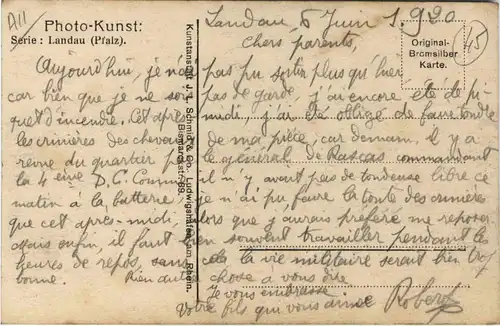 A11
Photo-Kunst:
Serie : Landau (Pfalz).
Landau, 6 Juin 1920
45
Original-
Bromsilber
Karte.
Kunstanstalt J. L. Schmidt & Co., Ludwigshafen am Rhein.
Bismarckstr. 89.
Chers parents,
Aujourd'hui, je n'ai pas pu sortir plus qu'hier,
car bien que je ne sois pas de garde, j'ai encore été de pi-
quet d'incendie. Cet après midi, j'ai été obligé de faire tondre
les crinières des chevaux de ma pièce, car demain, il y a
revue du quartier par le général de commandant
la 4ème D.C. Comme il n'y avait pas de tondeuse libre ce
matin à la batterie, je n'ai pu faire la tonte des crinières
que cet après-midi, alors que j'aurais préféré me reposer
mais enfin, il faut bien souvent travailler pendant les
heures de repos, sans cela la vie militaire serait bien trop
bonne. Rien autre chose à vous dire
Je vous embrasse
Votre fils qui vous aime Robert